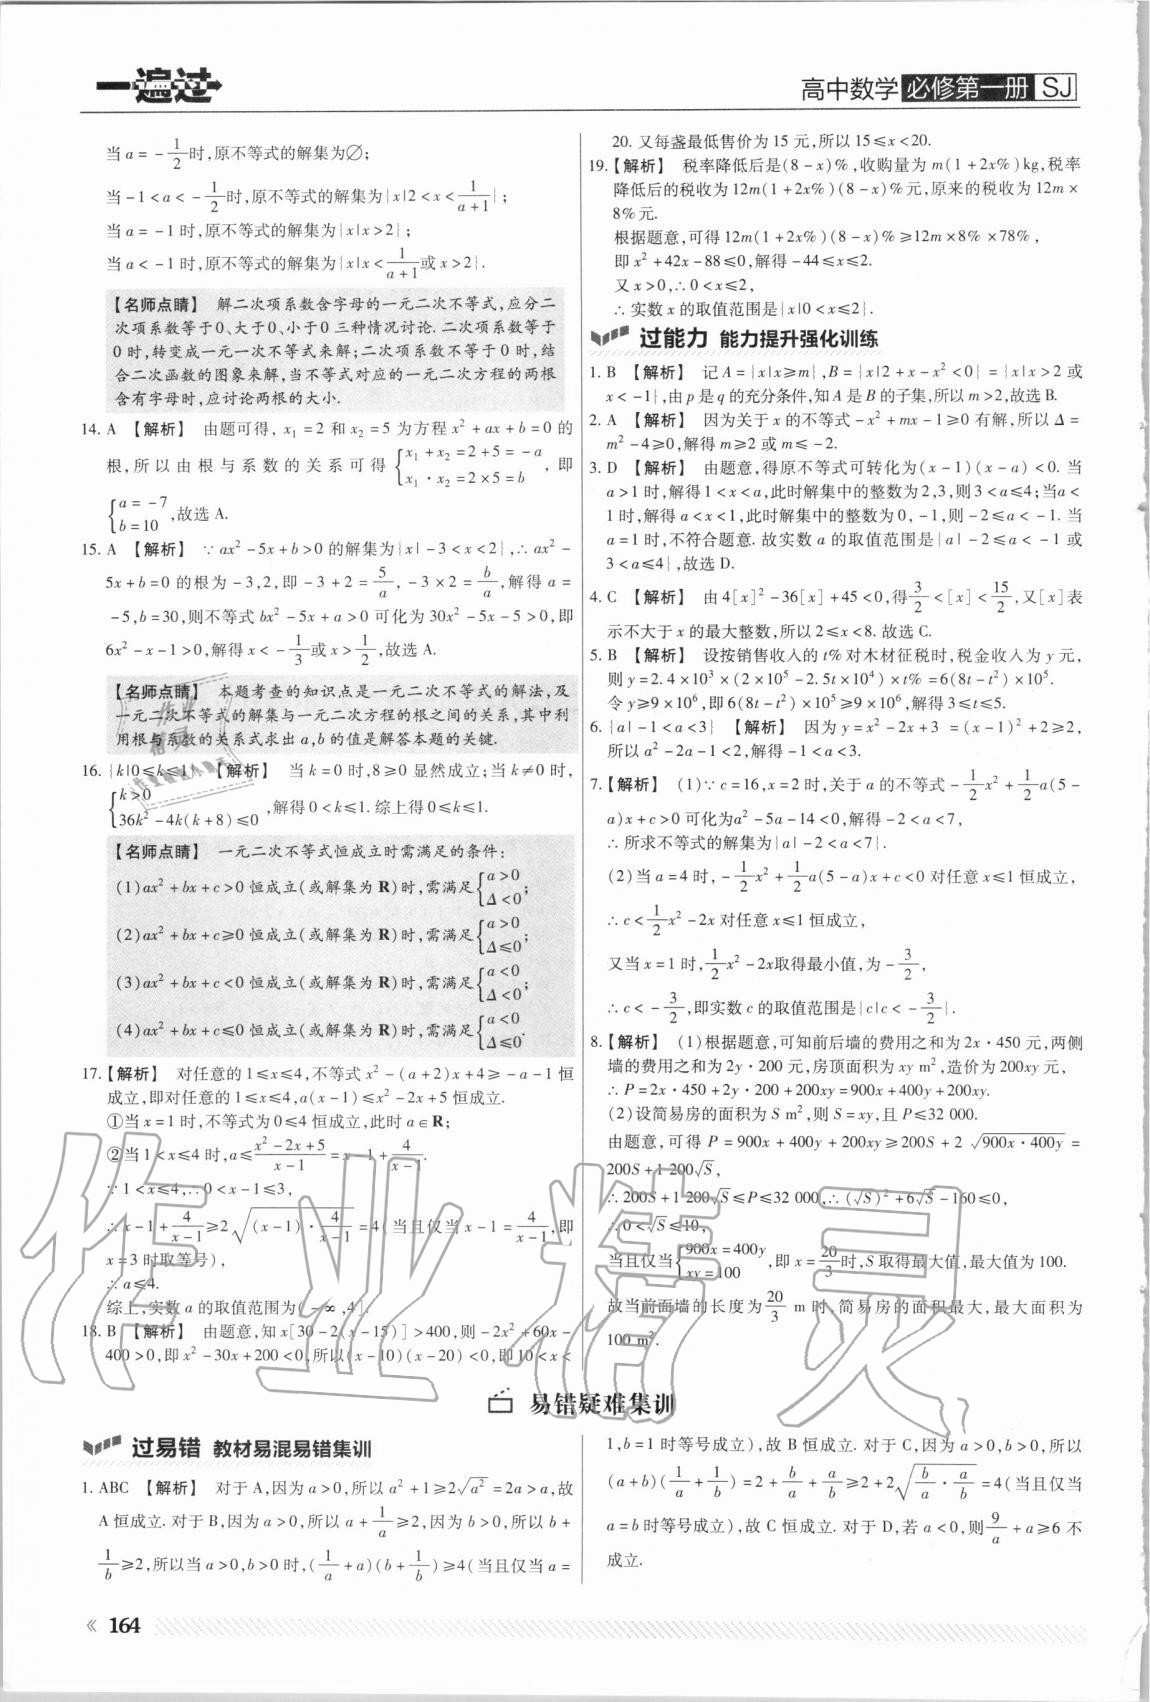 一遍过
高中数学 必修第一册 SJ
当a=-1/2时,原不等式的解集为∅;
当-1<a<-1/2时,原不等式的解集为{x|2<x<1/(a+1)};
当a=-1时,原不等式的解集为{x|x>2};
当a<-1时,原不等式的解集为{x|x<1/(a+1)或x>2}.
【名师点睛】 解二次项系数含字母的一元二次不等式,应分二
次项系数等于0、大于0、小于0三种情况讨论.二次项系数等于
0时,转变成一元一次不等式来解;二次项系数不等于0时,结
合二次函数的图象来解,当不等式对应的一元二次方程的两根
含有字母时,应讨论两根的大小.
14. A 【解析】 由题可得, x₁=2和x₂=5为方程x²+ax+b=0的
根,所以由根与系数的关系可得{x₁+x₂=2+5=-a
x₁·x₂=2×5=b,即
{a=-7
b=10,故选A.
15. A 【解析】 ∵ax²-5x+b>0的解集为{x|-3<x<2},∴ax²-
5x+b=0的根为-3,2,即-3+2=5/a,-3×2=b/a,解得a=
-5,b=30,则不等式bx²-5x+a>0可化为30x²-5x-5>0,即
6x²-x-1>0,解得x<-1/3或x>1/2,故选A.
【名师点睛】 本题考查的知识点是一元二次不等式的解法,及
一元二次不等式的解集与一元二次方程的根之间的关系,其中利
用根与系数的关系式求出a,b的值是解答本题的关键.
16. {k|0≤k≤1} 【解析】 当k=0时,8≥0显然成立;当k≠0时,
{k>0
36k²-4k(k+8)≤0,解得0<k≤1.综上得0≤k≤1.
【名师点睛】 一元二次不等式恒成立时需满足的条件:
(1)ax²+bx+c>0恒成立(或解集为R)时,需满足{a>0
Δ<0;
(2)ax²+bx+c≥0恒成立(或解集为R)时,需满足{a>0
Δ≤0;
(3)ax²+bx+c<0恒成立(或解集为R)时,需满足{a<0
Δ<0;
(4)ax²+bx+c≤0恒成立(或解集为R)时,需满足{a<0
Δ≤0.
17.【解析】 对任意的1≤x≤4,不等式x²-(a+2)x+4≥-a-1恒
成立,即对任意的1≤x≤4,a(x-1)≤x²-2x+5恒成立.
①当x=1时,不等式为0≤4恒成立,此时a∈R;
②当1<x≤4时,a≤(x²-2x+5)/(x-1)=x-1+4/(x-1).
∵1<x≤4,∴0<x-1≤3,
∴x-1+4/(x-1)≥2√((x-1)·4/(x-1))=4(当且仅当x-1=4/(x-1),即
x=3时取等号),
∴a≤4.
综上,实数a的取值范围为(-∞,4].
18. B 【解析】 由题意,知x[30-2(x-15)]>400,则-2x²+60x-
400>0,即x²-30x+200<0,所以(x-10)(x-20)<0,即10<x<
20.又每盏最低售价为15元,所以15≤x<20.
19.【解析】 税率降低后是(8-x)%,收购量为m(1+2x%)kg,税率
降低后的税收为12m(1+2x%)(8-x)%元,原来的税收为12m×
8%元.
根据题意,可得12m(1+2x%)(8-x)%≥12m×8%×78%,
即x²+42x-88≤0,解得-44≤x≤2.
又x>0,∴0<x≤2,
∴实数x的取值范围是{x|0<x≤2}.
过能力 能力提升强化训练
1. B 【解析】 记A={x|x≥m},B={x|2+x-x²<0}={x|x>2或
x<-1},由p是q的充分条件,知A是B的子集,所以m>2,故选B.
2. A 【解析】 因为关于x的不等式-x²+mx-1≥0有解,所以Δ=
m²-4≥0,解得m≥2或m≤-2.
3. D 【解析】 由题意,得原不等式可转化为(x-1)(x-a)<0.当
a>1时,解得1<x<a,此时解集中的整数为2,3,则3<a≤4;当a<
1时,解得a<x<1,此时解集中的整数为0,-1,则-2≤a<-1.当
a=1时,不符合题意.故实数a的取值范围是{a|-2≤a<-1或
3<a≤4},故选D.
4. C 【解析】 由4[x]²-36[x]+45<0,得3/2<[x]<15/2,又[x]表
示不大于x的最大整数,所以2≤x<8.故选C.
5. B 【解析】 设按销售收入的t%对木材征税时,税金收入为y元,
则y=2.4×10³×(2×10⁵-2.5t×10⁴)×t%=6(8t-t²)×10⁵.
令y≥9×10⁶,即6(8t-t²)×10⁵≥9×10⁶,解得3≤t≤5.
6. {a|-1<a<3} 【解析】 因为y=x²-2x+3=(x-1)²+2≥2,
所以a²-2a-1<2,解得-1<a<3.
7.【解析】 (1)∵c=16,x=2时,关于a的不等式-1/2x²+1/2a(5-
a)x+c>0可化为a²-5a-14<0,解得-2<a<7,
∴所求不等式的解集为{a|-2<a<7}.
(2)当a=4时,-1/2x²+1/2a(5-a)x+c<0对任意x≤1恒成立,
∴c<1/2x²-2x对任意x≤1恒成立,
又当x=1时,1/2x²-2x取得最小值,为-3/2,
∴c<-3/2,即实数c的取值范围是{c|c<-3/2}.
8.【解析】 (1)根据题意,可知前后墙的费用之和为2x·450元,两侧
墙的费用之和为2y·200元,房顶面积为xy m²,造价为200xy元,
∴P=2x·450+2y·200+200xy=900x+400y+200xy.
(2)设简易房的面积为S m²,则S=xy,且P≤32 000.
由题意,可得P=900x+400y+200xy≥200S+2√(900x·400y)=
200S+1 200√S,
∴200S+1 200√S≤P≤32 000,∴(√S)²+6√S-160≤0,
∴0<√S≤10,
当且仅当{900x=400y
xy=100,即x=20/3时,S取得最大值,最大值为100.
故当前面墙的长度为20/3 m时,简易房的面积最大,最大面积为
100 m².
易错疑难集训
过易错 教材易混易错集训
1. ABC 【解析】 对于A,因为a>0,所以a²+1≥2√a²=2a>a,故
A恒成立.对于B,因为a>0,所以a+1/a≥2,因为b>0,所以b+
1/b≥2,所以当a>0,b>0时,(1/a+a)(b+1/b)≥4(当且仅当a=
1,b=1时等号成立),故B恒成立.对于C,因为a>0,b>0,所以
(a+b)(1/a+1/b)=2+b/a+a/b≥2+2√(b/a·a/b)=4(当且仅当
a=b时等号成立),故C恒成立.对于D,若a<0,则9/a+a≥6不
成立.
« 164
作业精灵